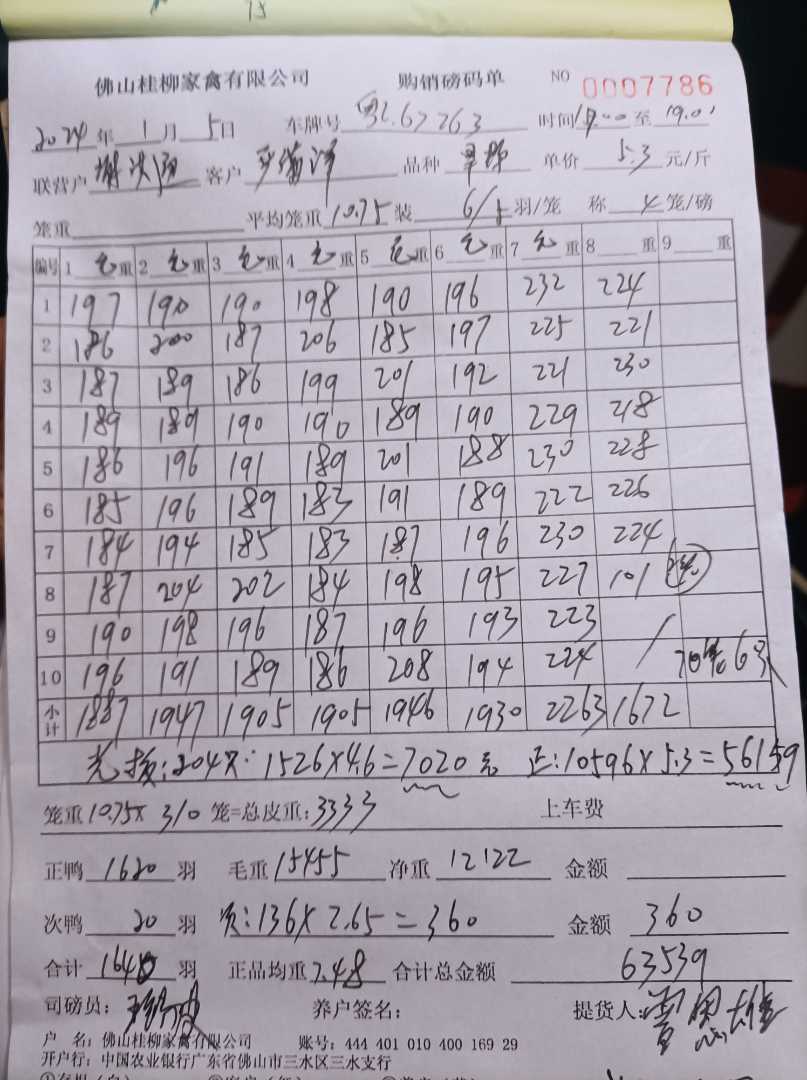 佛山桂柳家禽有限公司 购销磅码单 NO 0007786
2024年1月5日 车牌号 粤L67263 时间 至19.0
联营户 客户 品种 单价5.3元/斤
笼重 平均笼重10.75装6/5羽/笼 称4笼/磅
编号 1 毛重 2 毛重 3 毛重 4 毛重 5 毛重 6 毛重 7 毛重 8 重 9 重
1 197 190 190 198 190 196 232 224
2 186 200 187 206 185 197 225 221
3 187 189 186 199 201 192 221 230
4 189 189 190 190 189 190 229 218
5 186 196 191 189 201 188 230 228
6 185 196 189 183 191 189 222 226
7 184 194 185 183 187 196 230 224
8 187 204 202 184 198 195 227 101
9 190 198 196 187 196 193 223 /
10 196 191 189 186 208 194 224
小计 1887 1947 1905 1905 1946 1930 2263 1672
204 1526×4.6=7020元 正:10596×5.3=56159
笼重10.75×310笼=总皮重:3333 上车费
正鸭1620羽 毛重15455 净重12122 金额
次鸭20羽 136×2.65=360 金额360
合计 羽 正品均重7.48 合计总金额63539
司磅员: 养户签名: 提货人:
户 名:佛山桂柳家禽有限公司 账号:444 401 010 400 169 29
开户行:中国农业银行广东省佛山市三水区三水支行